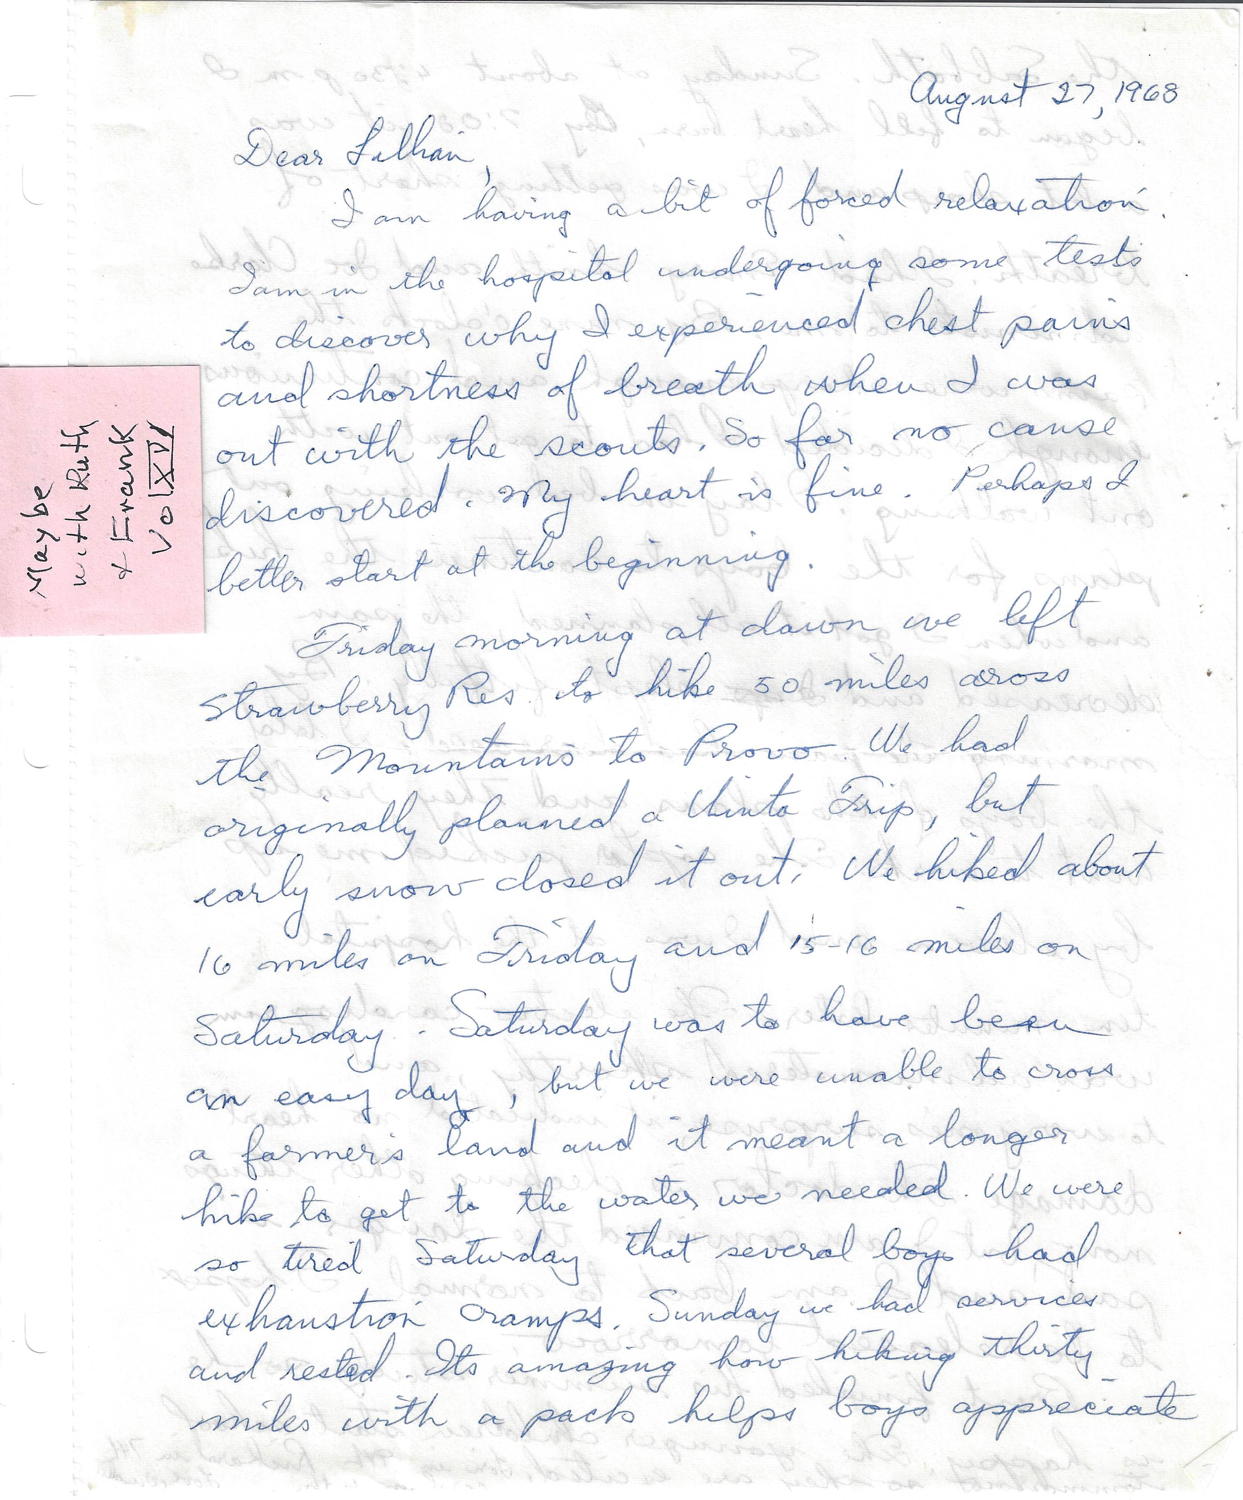 August 27, 1968
Dear Lillian,
I am having a bit of forced relaxation.
I am in the hospital undergoing some tests
to discover why I experienced chest pains
and shortness of breath when I was
out with the scouts. So far no cause
discovered. My heart is fine. Perhaps I
better start at the beginning.
Friday morning at dawn we left
Strawberry Res. to hike 50 miles across
the Mountains to Provo. We had
originally planned a Uinta Trip, but
early snow closed it out. We hiked about
16 miles on Friday and 15-16 miles on
Saturday. Saturday was to have been
an easy day, but we were unable to cross
a farmer's land and it meant a longer
hike to get to the water we needed. We were
so tired Saturday that several boys had
exhaustion cramps. Sunday we had services
and rested. Its amazing how hiking thirty
miles with a pack helps boys appreciate
Maybe
with Ruth
& Frank
Vol XVI